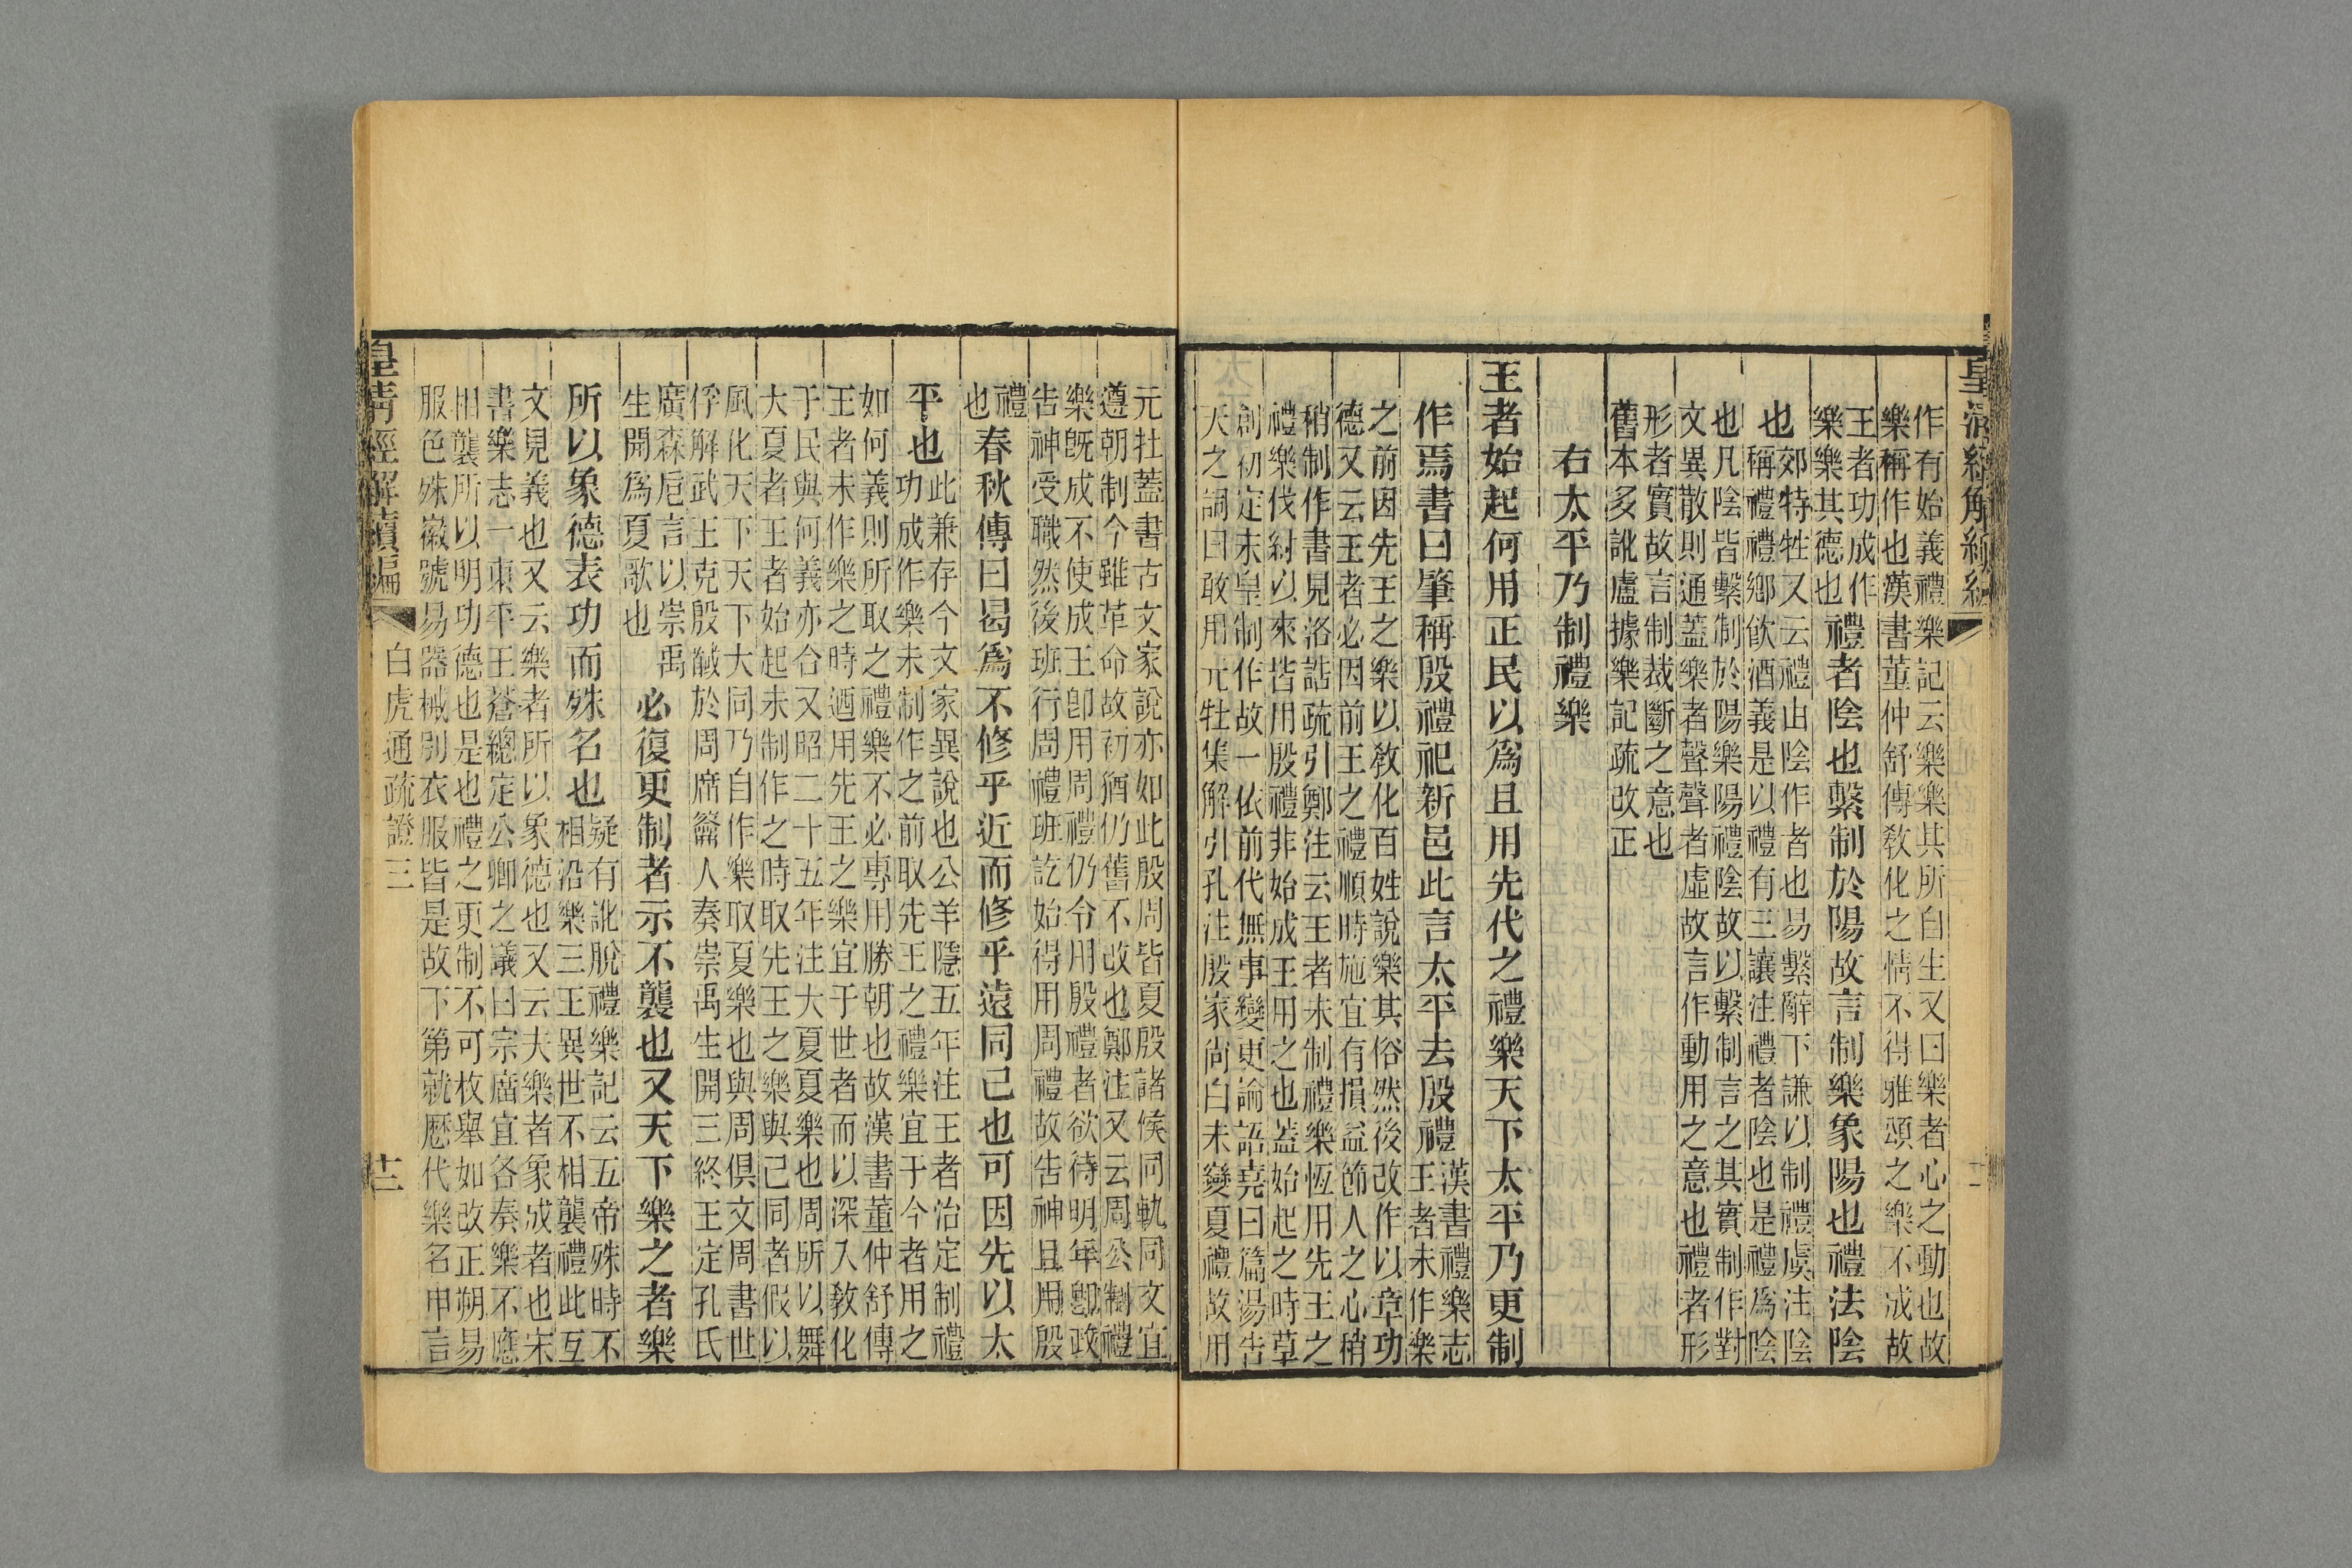 皇清經解續編
作有始義禮樂記云樂樂其所自生又曰樂者心之動也故
樂稱作也漢書董仲舒傳教化之情不得雅頌之樂不成故
王者功成作
樂樂其德也
禮者陰也繫制於陽故言制樂象陽也禮法陰
也
郊特牲又云禮由陰作者也易繫辭下謙以制禮虞注陰
稱禮禮鄉飮酒義是以禮有三讓注禮者陰也是禮爲陰
也凡陰皆繫制於陽樂陽禮陰故以繫制言之其實制作對
文異散則通蓋樂者聲聲者虛故言作動用之意也禮者形
形者實故言制裁斷之意也
舊本多訛盧據樂記疏改正
右太平乃制禮樂
王者始起何用正民以爲且用先代之禮樂天下太平乃更制
作焉書曰肇稱殷禮祀新邑此言太平去殷禮
漢書禮樂志
王者未作樂
之前因先王之樂以敎化百姓說樂其俗然後改作以章功
德又云王者必因前王之禮順時施宜有損益節人之心稍
稍制作書見洛誥疏引鄭注云王者未制禮樂恆用先王之
禮樂伐紂以來皆用殷禮非始成王用之也蓋始起之時草
創初定未皇制作故一依前代無事變更論語堯曰篇湯告
天之詞曰敢用元牡集解引孔注殷家尙白未變夏禮故用
元牡蓋書古文家說亦如此殷周皆夏殷諸侯同軌同文宜
遵朝制今雖革命故初猶仍舊不改也鄭注又云周公制禮
樂旣成不使成王卽用周禮仍令用殷禮者欲待明年卽政
告神受職然後班行周禮班訖始得用周禮故告神且用殷
禮
也
春秋傳曰曷爲不修乎近而修乎遠同己也可因先以太
平也
此兼存今文家異說也公羊隱五年注王者治定制禮
功成作樂未制作之前取先王之禮樂宜于今者用之
如何義則所取之禮樂不必專用勝朝也故漢書董仲舒傳
王者未作樂之時迺用先王之樂宜于世者而以深入敎化
于民與何義亦合又昭二十五年注大夏夏樂也周所以舞
大夏者王者始起未制作之時取先王之樂與己同者假以
風化天下天下大同乃自作樂取夏樂也與周俱文周書世
俘解武王克殷馘於周席籥人奏崇禹生開三終王定孔氏
廣森巵言以崇禹
生開爲夏歌也
必復更制者示不襲也又天下樂之者樂
所以象德表功而殊名也
疑有訛脫禮樂記云五帝殊時不
相沿樂三王異世不相襲禮此互
文見義也又云樂者所以象德也又云夫樂者象成者也宋
書樂志一東平王蒼總定公卿之議曰宗廟宜各奏樂不應
相襲所以明功德也是也禮之更制不可枚舉如改正朔易
服色殊徽號易器械別衣服皆是故下第就歷代樂名申言
皇清經解續編
白虎通疏證三
十二